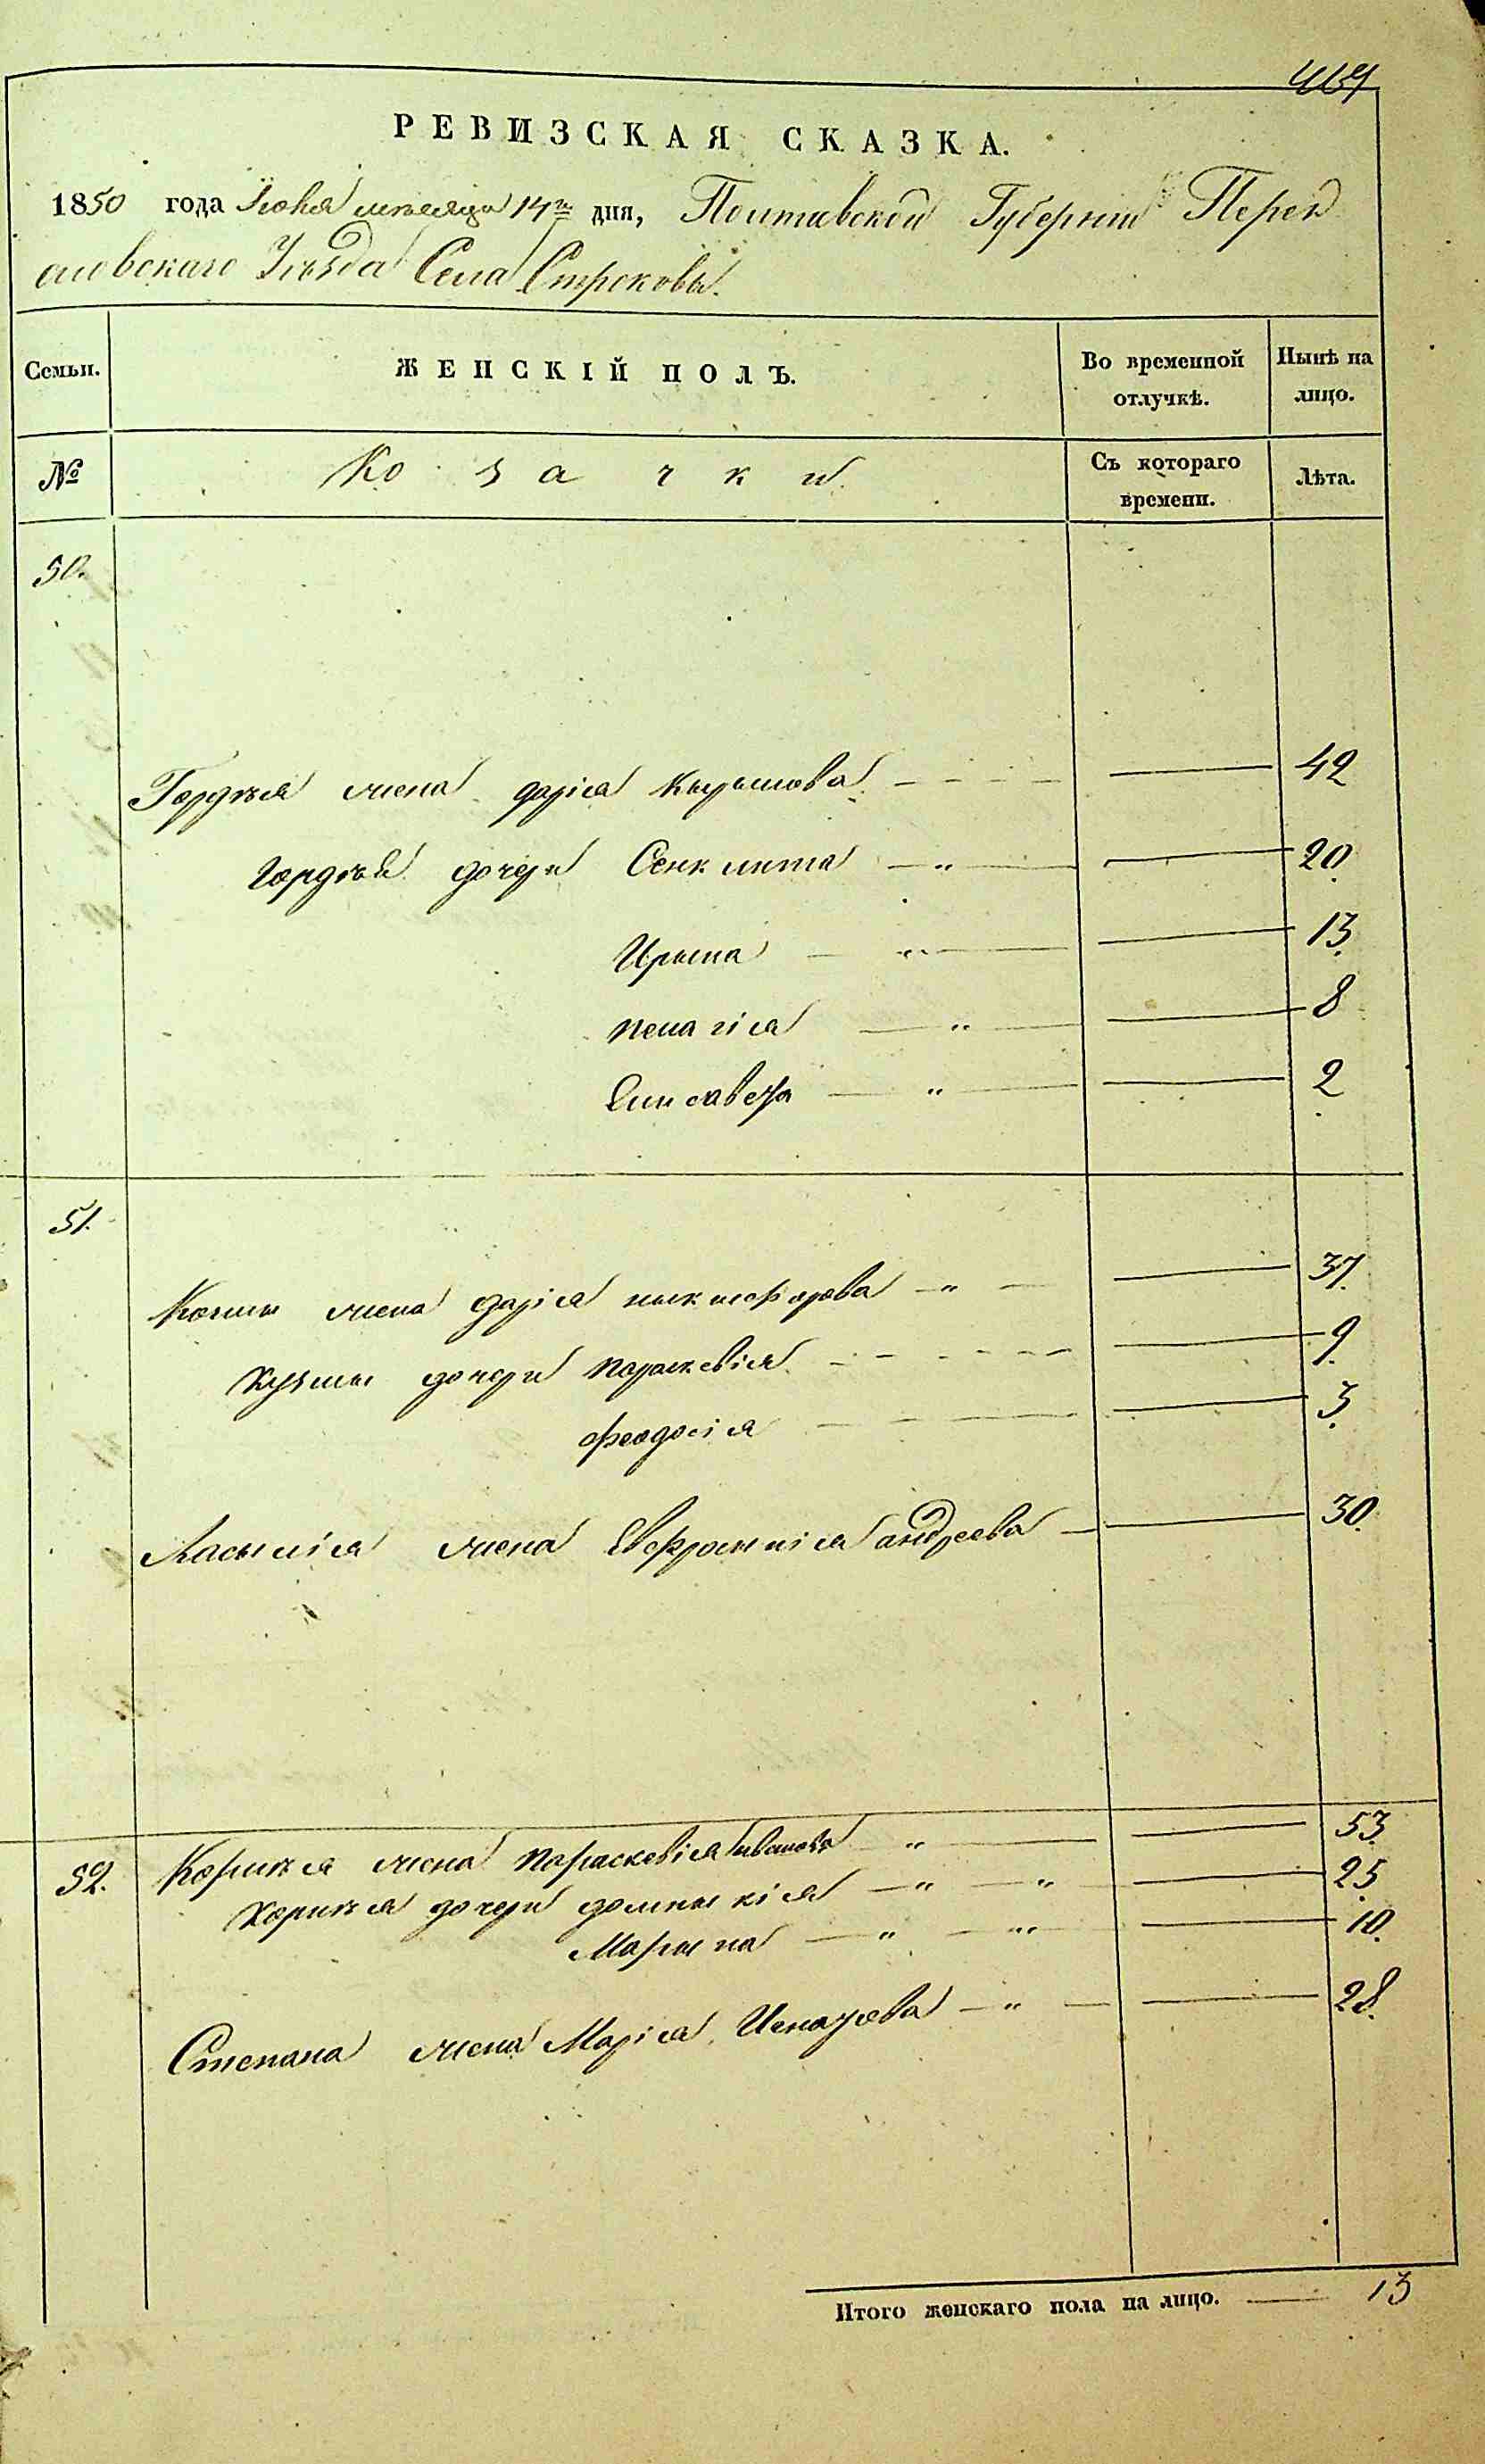 469
РЕВИЗСКАЯ СКАЗКА.
1850 года Іюня месяца 14го дня, Полтавской Губерніи Перея
славскаго Уѣзда Села Строковы.
Семьи. ЖЕНСКІЙ ПОЛЪ. Во временной отлучкѣ. Нынѣ на лицо.
№ Козачки Съ котораго времени. Лѣта.
50.
Гордѣя жена дарія Кырылова 42
Гордѣя дочери Сенклита 20.
Ирына 13.
пелагія 8
Елисавета 2
51.
жена дарія ныкифорова 37.
Кузмы дочери параскевія 9.
феодосія 3.
жена Евфросинія андреева 30.
52. Корнѣя жена параскевія иванова 53.
Корнѣя дочери домныкія 25.
Марына 10.
Степана жена Марія Назарова 28.
Итого женскаго пола на лицо. 13